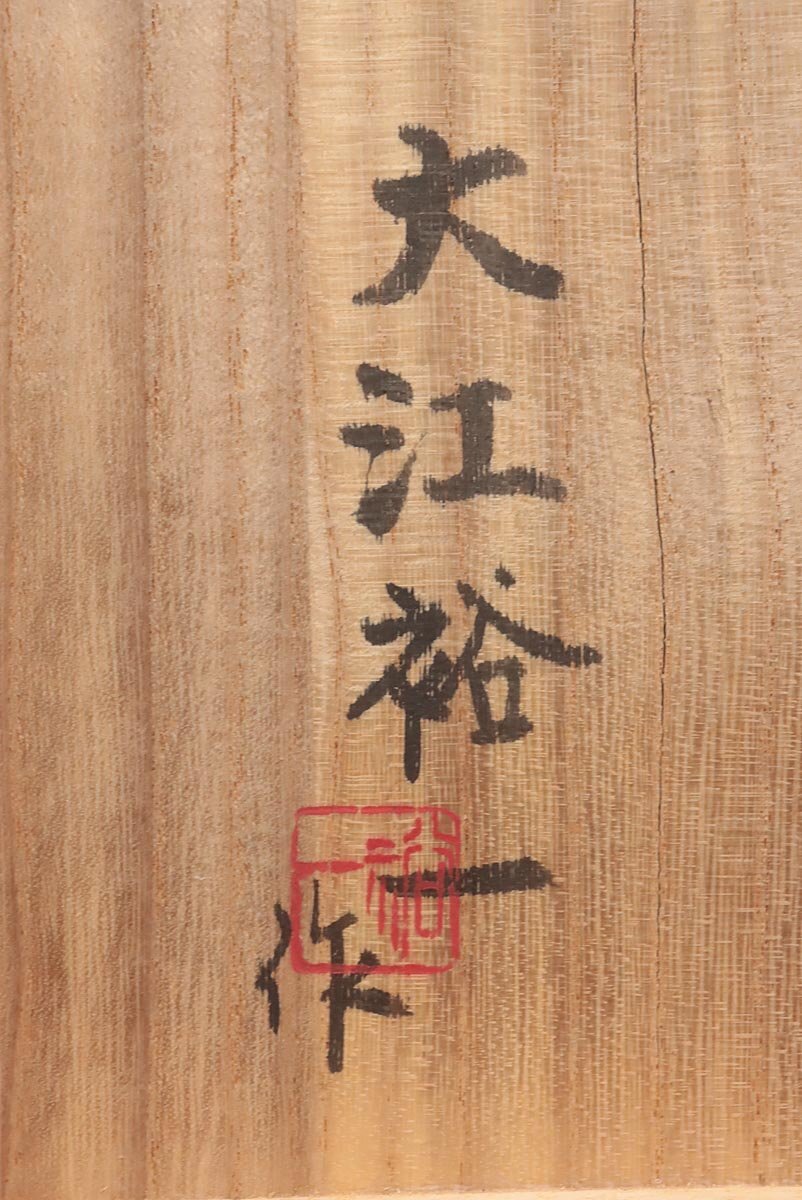 大江裕一
作
裕一